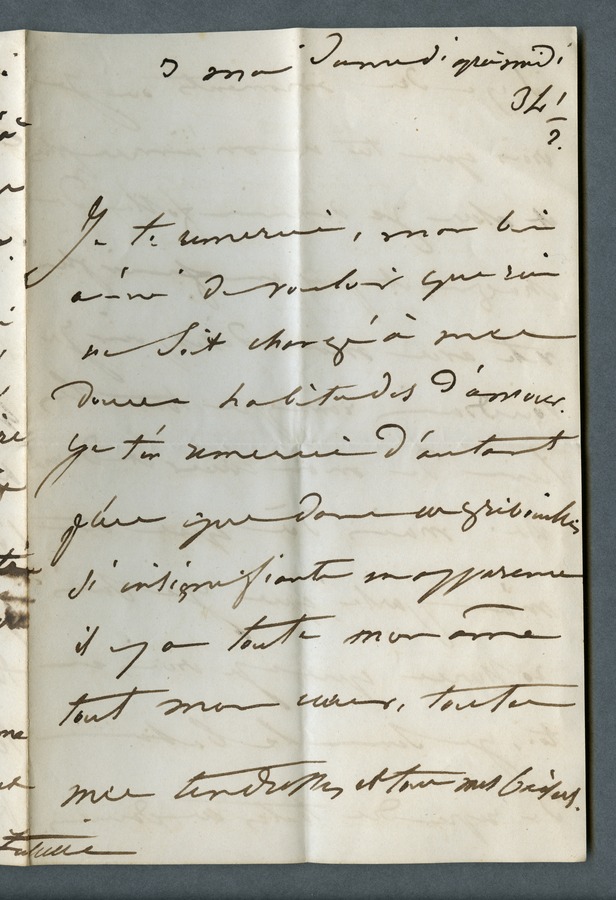 3 mai Samedi après midi
3h ½
?
Je te remercie, mon bien
aimé de vouloir que rien
ne soit changé à mes
douces habitudes d'amour.
Je t'en remercie d'autant
plus que dans ces gribouillis
si insignifiants en apparence
il y a toute mon âme
tout mon cœur, toutes
mes tendresses et tous mes baisers.
Juliette